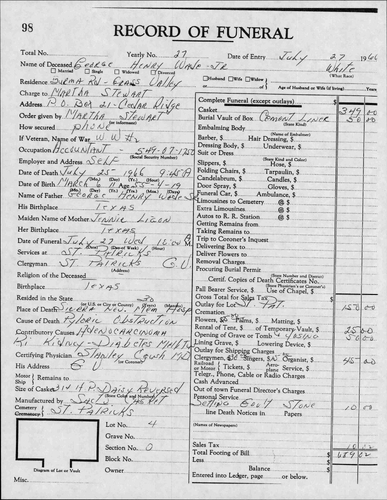 98
RECORD OF FUNERAL
Total No.
Yearly No. 27
Date of Entry July 27 1966
Name of Deceased George Henry Wade Jr.
White
(What Race)
Married Single Widowed Divorced
Residence Burma Rd - Grass Valley
Husband Wife Widow of
Age of Husband or Wife (if living) Years
Charge to Martha Stewart
Address P.O. Box 21 - Cedar Ridge
Order given by Martha Stewart
How secured phone
If Veteran, Name of War WW #2
Occupation Accountant
(Social Security Number)
Employer and Address Self
Date of Death July 25 1966 9:45 A
Date of Birth March 6 11 Age 55-4-19
Name of Father George Henry Wade Sr
His Birthplace Texas
Maiden Name of Mother Jennie
Her Birthplace Texas
Date of Funeral July 27 Wed
Services at St. Patricks G.V.
Clergyman St. Patricks G.V.
Religion of the Deceased
Birthplace Texas
Resided in the State
Place of Death Sierra Nev. Mem Hosp
Cause of Death Pyloric Obstruction
Contributory Causes Adenocarcinoma
Rt Kidney - Diabetes
Certifying Physician Stanley MD
His Address G V
Motor Ship Remains to
Size of Casket
Manufactured by
Cemetery St. Patricks
Crematory
Lot No. 4
Grave No.
Section No. 0
Block No.
Owner
Diagram of Lot or Vault
Misc.
Complete Funeral (except outlays) $
Casket 349 00
Burial Vault of Box Cement Liner 50 00
(State Kind)
Embalming Body
(Name of Embalmer)
Barber, $ Hair Dressing, $
Dressing Body, $ Underwear, $
Suit or Dress
(State Kind and Color)
Slippers, $ Hose, $
Folding Chairs, $ Tarpaulin, $
Candelabrum, $ Candles, $
Door Spray, $ Gloves, $
Funeral Car, $ Ambulance, $
Limousines to Cemetery @ $
Extra Limousines @ $
Autos to R. R. Station @ $
Getting Remains from
Taking Remains to
Trip to Coroner's Inquest
Delivering Box to
Deliver Flowers to
Removal Charges
Procuring Burial Permit
(State Number and District)
Certif. Copies of Death Certificates No.
Pall Bearer Service, $ Use of Chapel, $
Gross Total for Sales Tax $
Outlay for Lot St. Pat 150 00
Flowers, $ Palms, $ Matting, $
Rental of Tent, $ of Temporary-Vault, $ 25 00
Opening of Grave or Tomb + closing 50 00
Lining Grave, $ Lowering Device, $
Outlay for Shipping Charges
Clergyman, $ Singers, $ Organist, $ 45 00
Railroad and Motor Tickets, $ Aeroplane Service, $
Telegrams, $
Cash Advanced
Out of town Funeral Director's Charges
Personal Service
Setting Govt Stone 10 00
line Death Notices in Papers
(Names of Newspapers)
Sales Tax
Total Footing of Bill $
Less $
Balance $
Entered into Ledger, page or below.